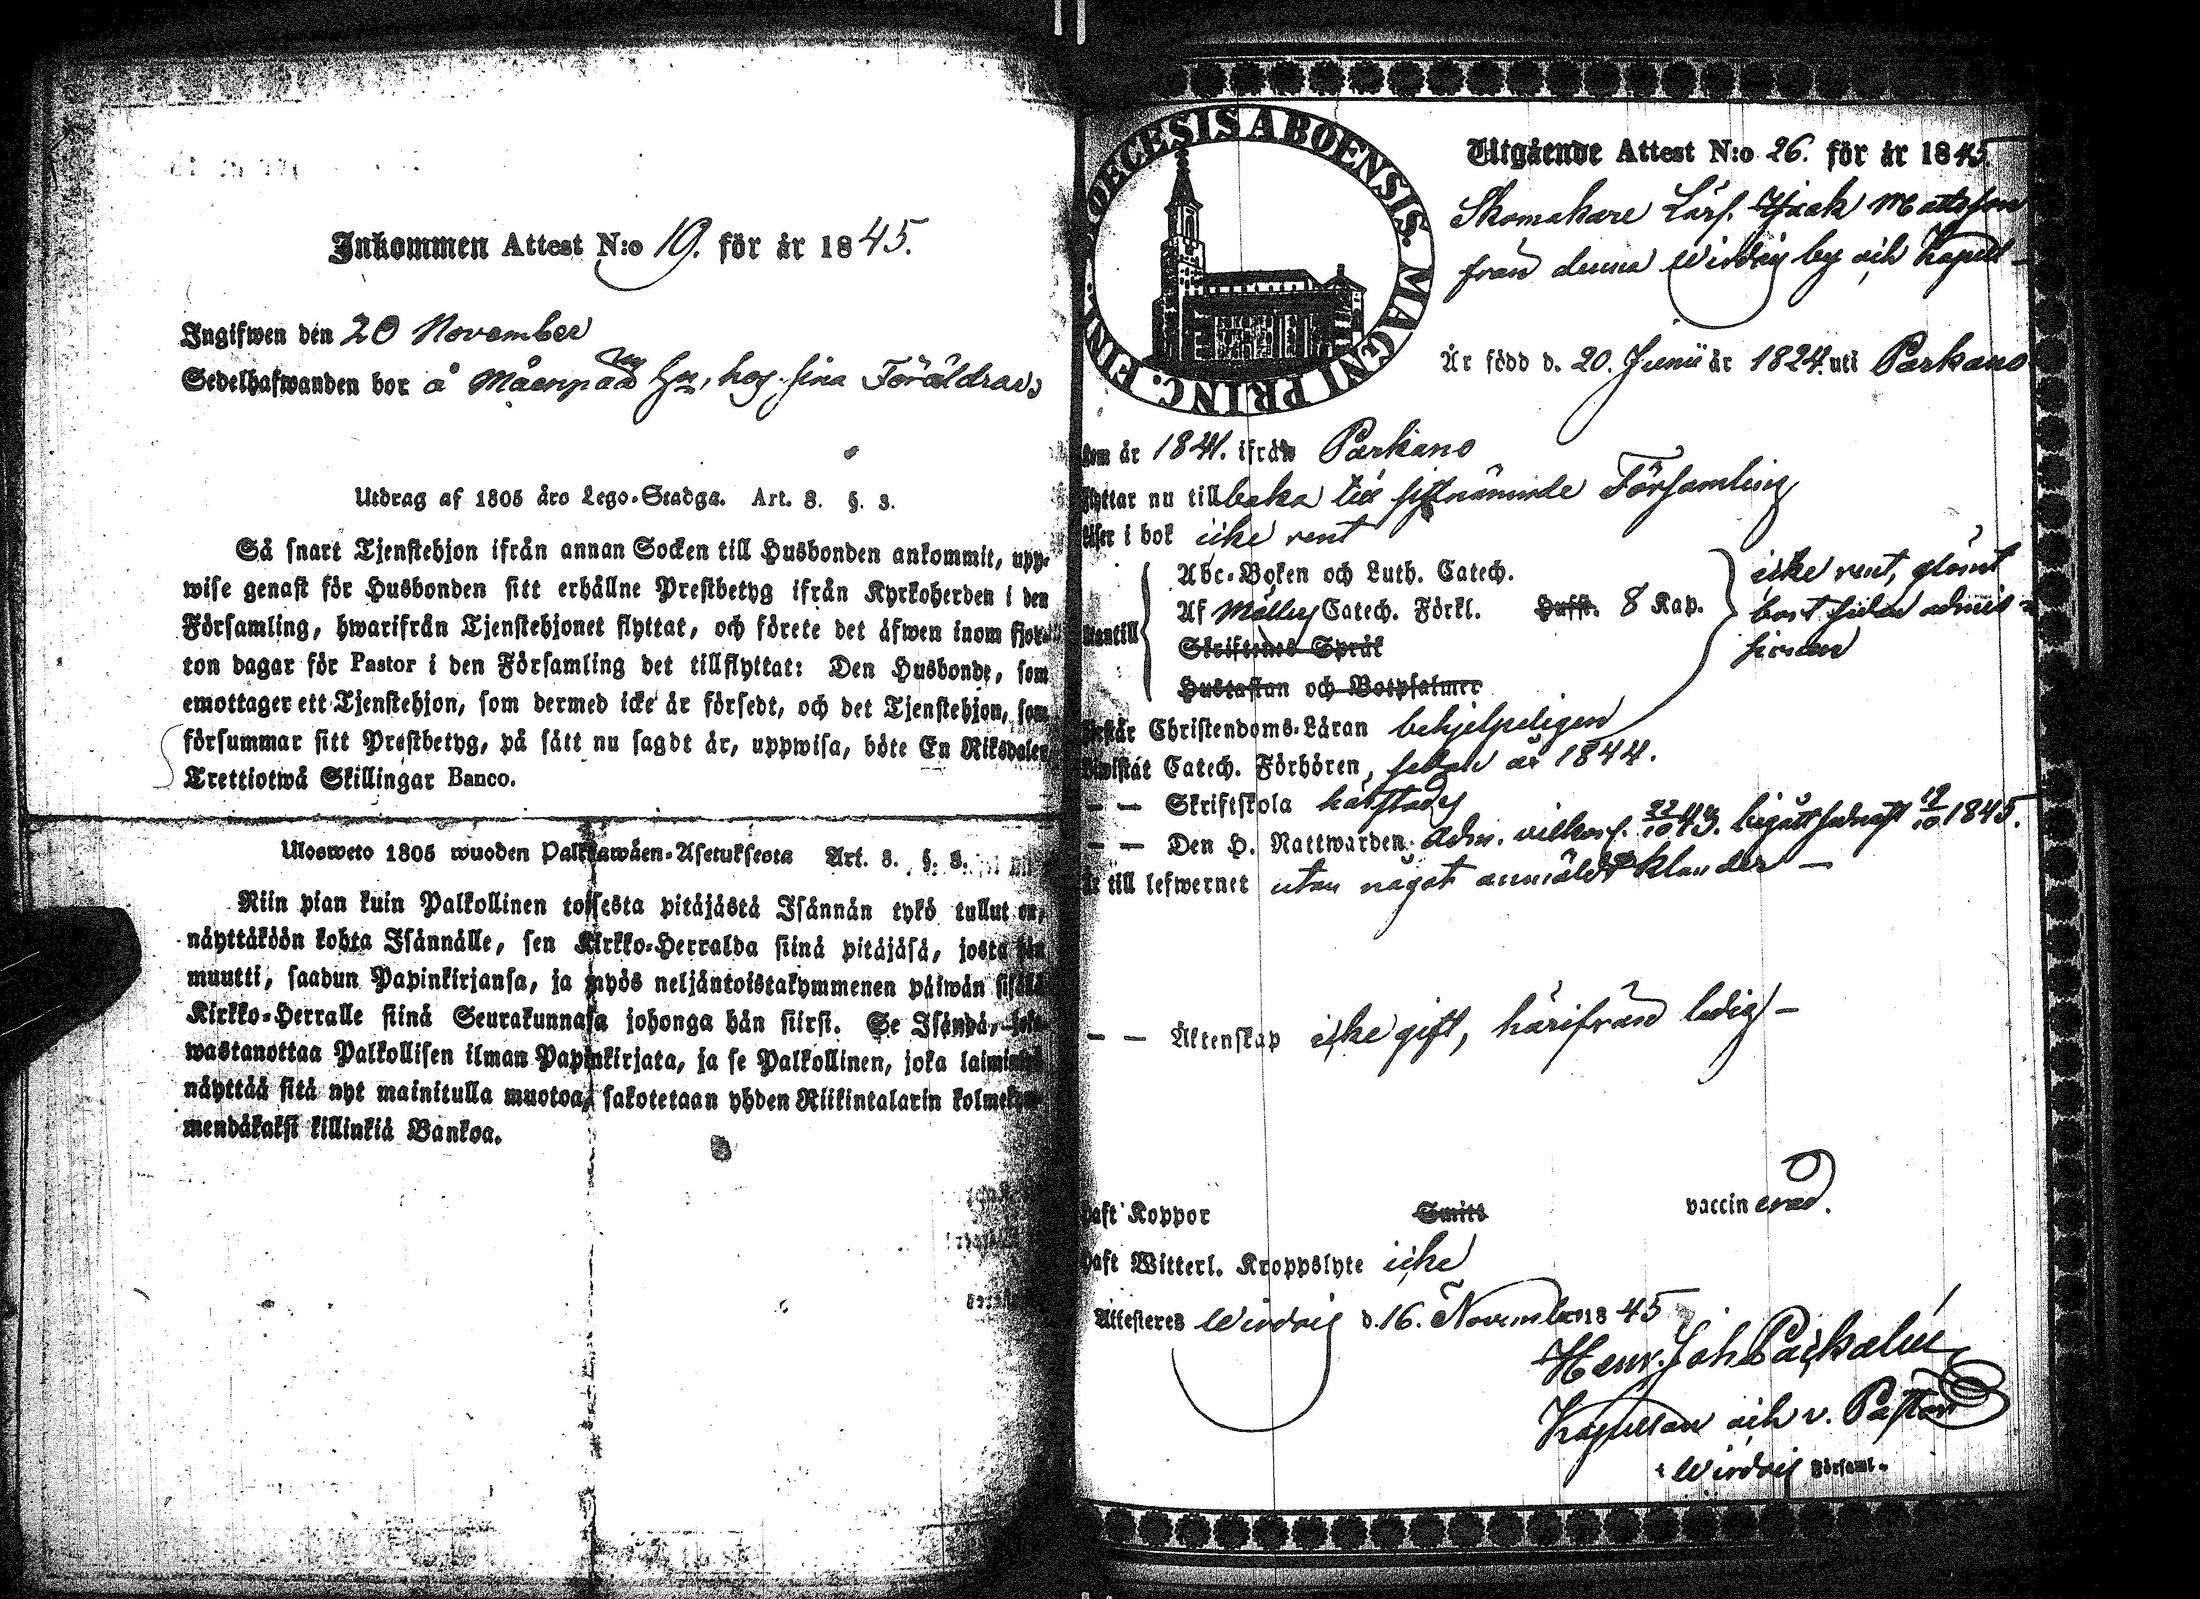 Inkommen Attest N:o 19. för år 1845.
Ingifwen den 20 November
Sedelhafwanden bor å Mäenpää hos sina Föräldrar,
Utdrag af 1805 års Lego-Stadga. Art. 3. §. 3.
Så snart Tjenstehjon ifrån annan Socken till Husbonden ankommit, upp-
wise genast för Husbonden sitt erhållne Prestbetyg ifrån Kyrkoherden i den
Församling, hwarifrån Tjenstehjonet flyttat, och förete det äfwen inom fjor-
ton dagar för Pastor i den Församling det tillflyttat: Den Husbonde, som
emottager ett Tjenstehjon, som dermed icke är försedt, och det Tjenstehjon, som
försummar sitt Prestbetyg, på sätt nu sagdt är, uppwisa, böte En Riksdaler
Trettiotwå Skillingar Banco.
Ulosweto 1805 wuoden Palkkawäen-Asetuksesta Art. 3. §. 3.
Niin pian kuin Palkollinen toisesta pitäjästä Isännän tykö tullut on,
näyttäköön kohta Isännälle, sen Kirkko-Herralda siinä pitäjäsä, josta hän
muutti, saadun Papinkirjansa, ja myös neljäntoistakymmenen päiwän sisällä
Kirkko-Herralle siinä Seurakunnasa johonga hän siirsi. Se Isändä, joka
wastanottaa Palkollisen ilman Papinkirjata, ja se Palkollinen, joka laiminlyö
näyttää sitä nyt mainitulla muotoa, sakotetaan yhden Riikintalarin kolmekym-
mendäkaksi killinkiä Bankoa.
DIOECESIS ABOENSIS. MAGNI PRINC. FINL.
Utgående Attest N:o 26. för år 1845
Skomakare Lärl. Isaak Mattsson
från denna Wirdois by och Kapell
Är född d. 20. Junii år 1824. uti Parkano
kom år 1841. ifrån Parkano
flyttar nu tillbaka till sistnämnde Församling
läser i bok icke rent
Abc-Boken och Luth. Catech.
Af Möllers Catech. Förkl. Husst. 8 Kap.
icke rent, glömt
bort sedan admis-
sionen
utantill
Skriftenes Språk
Hustaflan och Botpsalmer
förstår Christendoms-Läran behjelpeligen
bewistat Catech. Förhören, sedan år 1844.
— — Skriftskola härstädes
— — Den H. Nattwarden. Adm. 22/10 43. begått sednast 19/10 1845.
är till lefwernet utan något anmäldt klander —
— — Äktenskap icke gift, härifrån ledig —
haft Koppor Smitt vaccinerad.
haft Witterl. Kroppslyte icke
Attesteres Wirdois d. 16. November 1845
Henr. Joh.
Kapellan och v. Pastor
i Wirdois Församl.